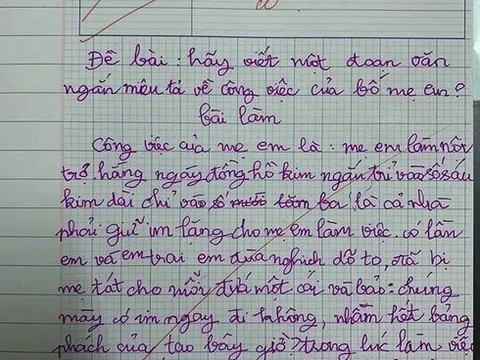 Đề bài: hãy viết một đoạn văn
ngắn miêu tả về công việc của bố mẹ em?
bài làm
Công việc của mẹ em là: mẹ em làm nội
trợ. hằng ngày đồng hồ kim ngắn trỉ vào số sáu
kim dài chỉ vào số mười lăm ba là cả nhà
phải giữ im lặng cho mẹ em làm việc. có lần
em và em trai em đùa nghịch dỗ to, đã bị
mẹ tát cho mỗi đứa một cái và bảo: chúng
mày có im ngay đi không, nhầm hết bảng
phách của tao bây giờ? trong lúc làm việc